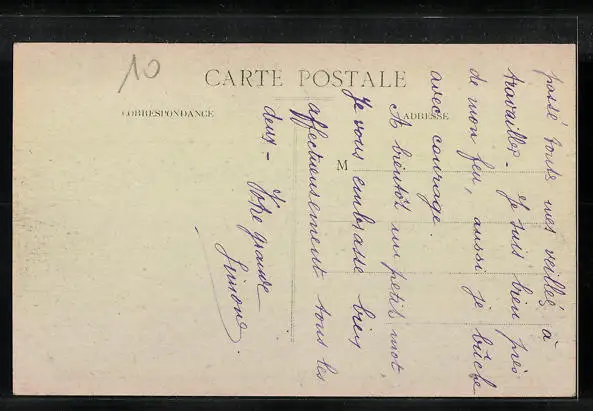 10
CARTE POSTALE
CORRESPONDANCE
ADRESSE
M
passé toute mes veilles à
travailler. Je suis bien près
de mon feu, aussi je bûche
avec courage.
A bientôt un petit mot,
Je vous embrasse bien
affectueusement tous les
deux - Votre grande
Simone.